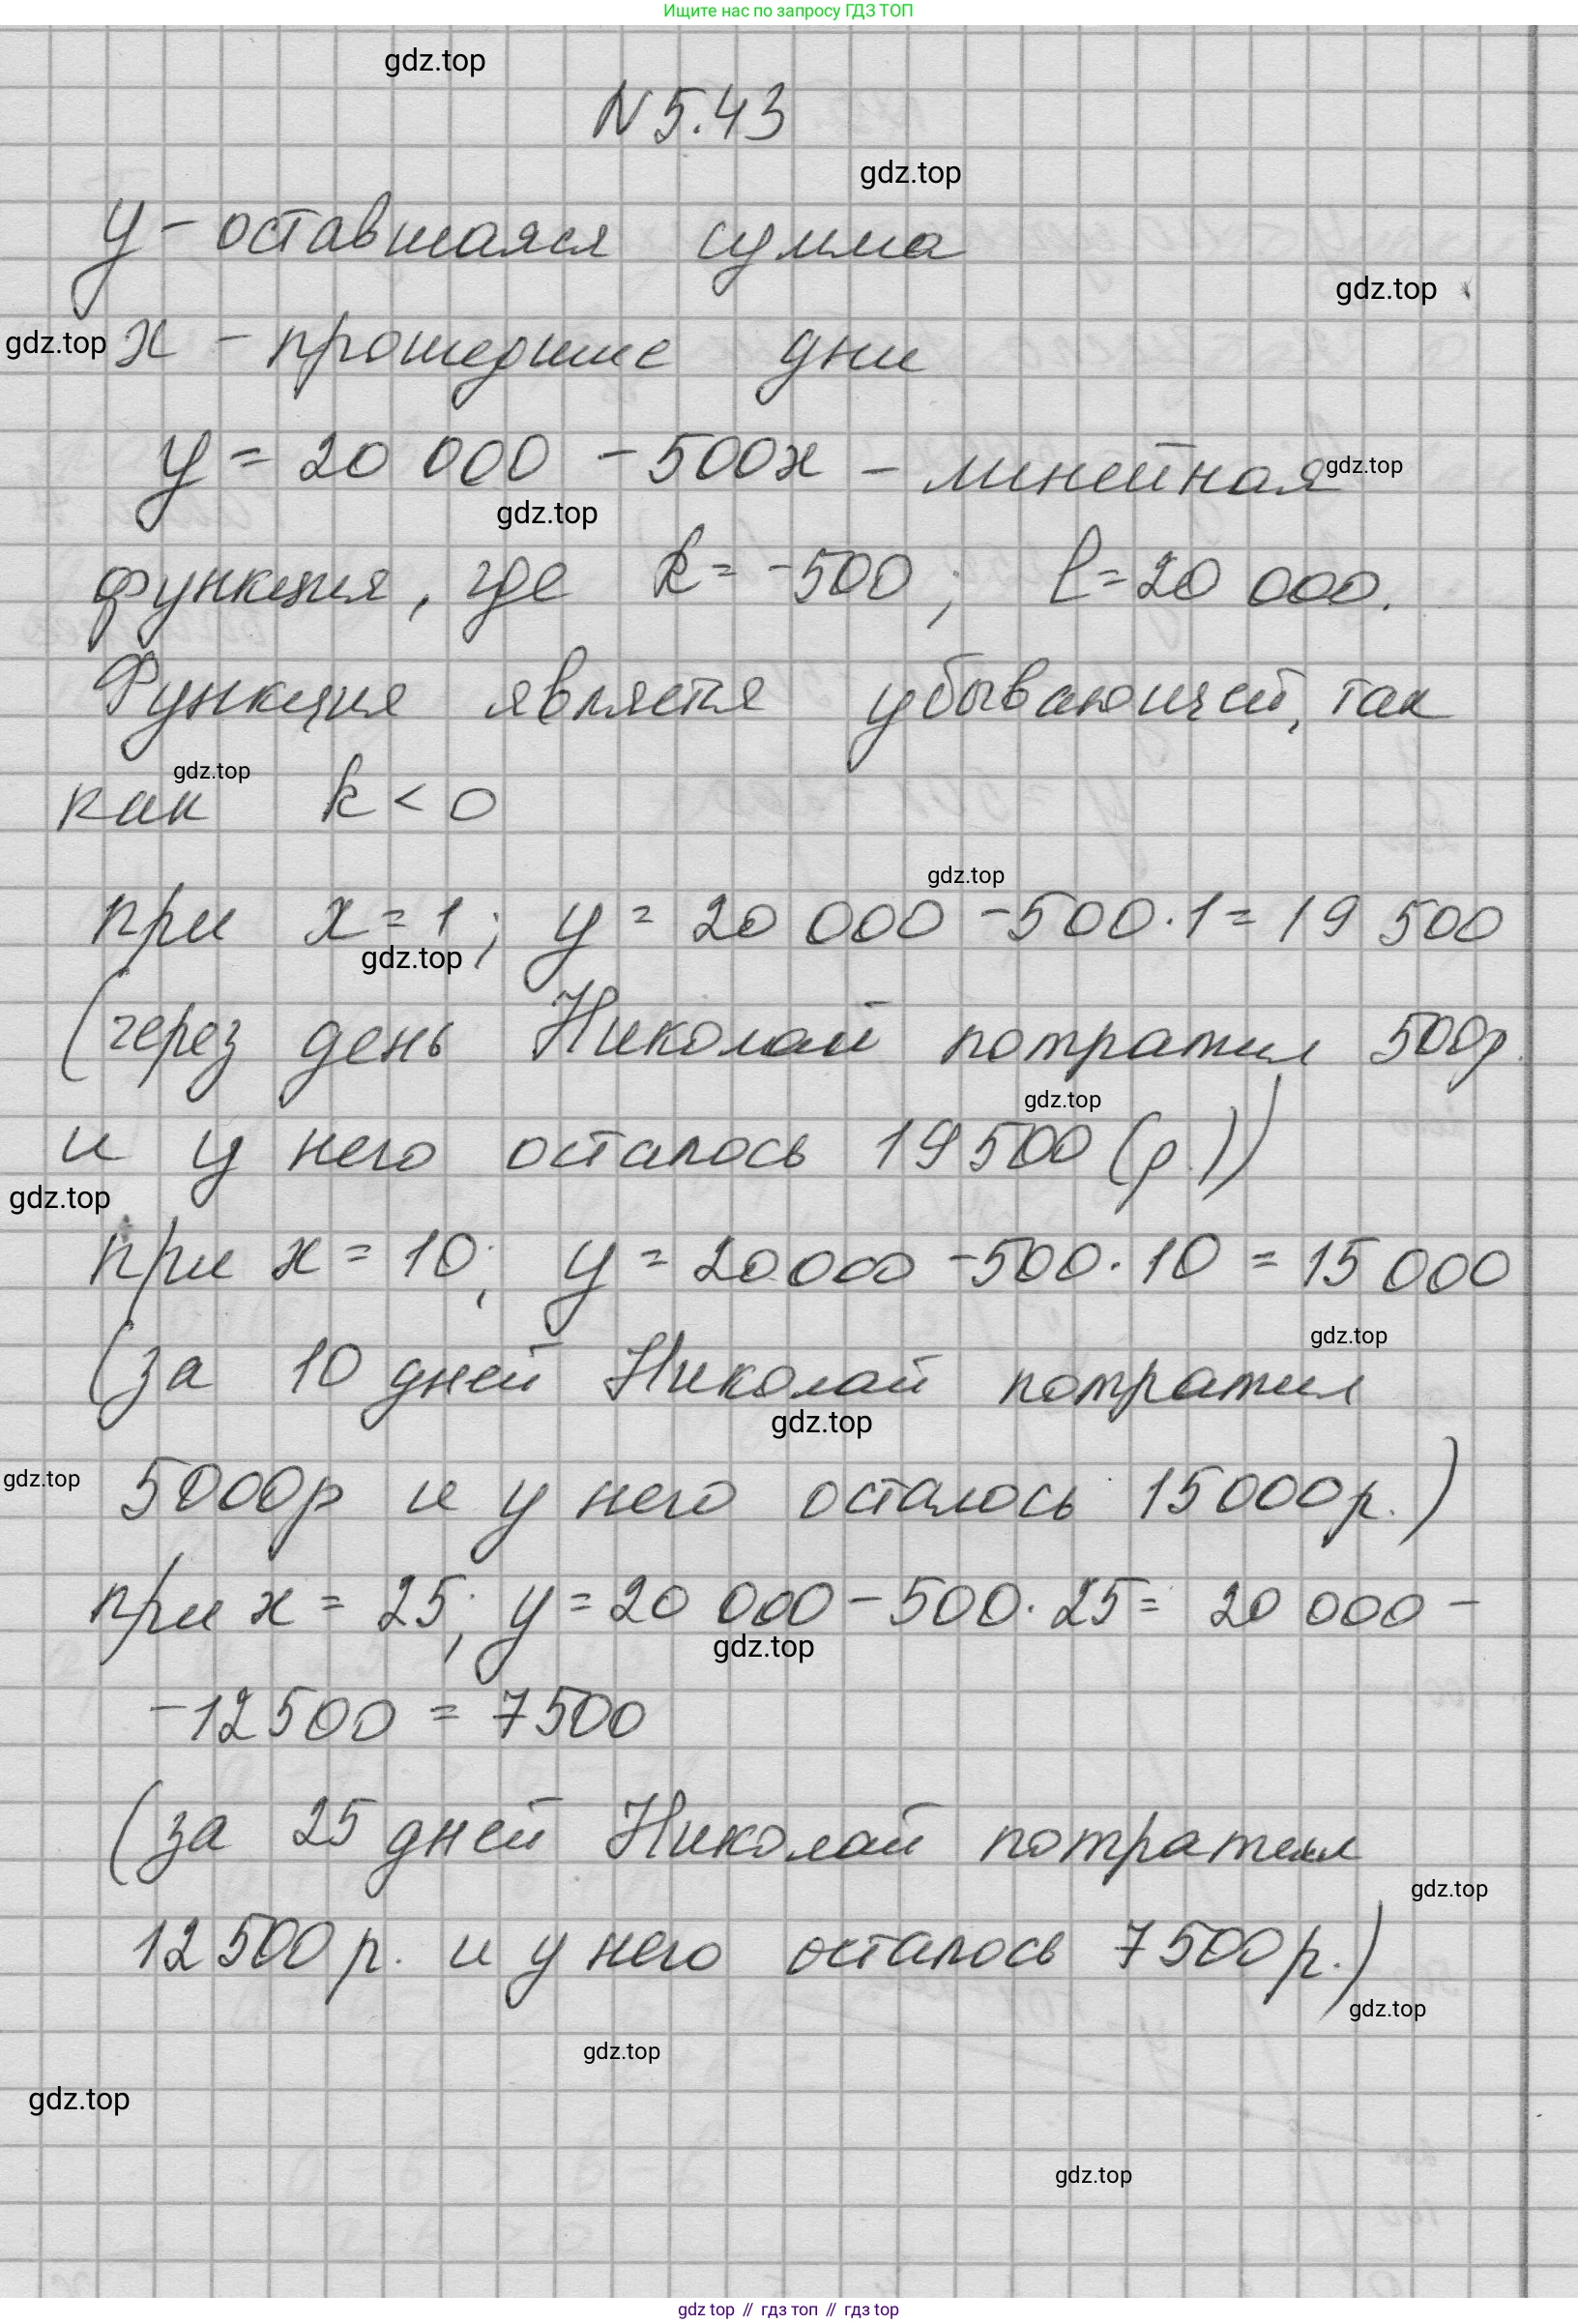 Ищите нас по запросу ГДЗ ТОП
gdz.top
N 5.43
gdz.top
y - оставшаяся сумма
gdz.top
gdz.top
x - прошедшие дни
y = 20 000 - 500x - линейная
gdz.top
gdz.top
функция, где k = -500; l = 20 000.
Функция является убывающей, так
gdz.top
как k < 0
gdz.top
при x = 1; y = 20 000 - 500 · 1 = 19 500
gdz.top
(через день Николай потратил 500р.
gdz.top
и у него осталось 19 500 (р.))
gdz.top
при x = 10; y = 20000 - 500 · 10 = 15 000
gdz.top
(за 10 дней Николай потратил
gdz.top
gdz.top
5000р и у него осталось 15000р.)
при x = 25; y = 20 000 - 500 · 25 = 20 000 -
gdz.top
- 12 500 = 7500
(за 25 дней Николай потратил
gdz.top
12 500 р. и у него осталось 7500р.)
gdz.top
gdz.top
gdz.top
gdz.top
gdz top // гдз топ // гдз top